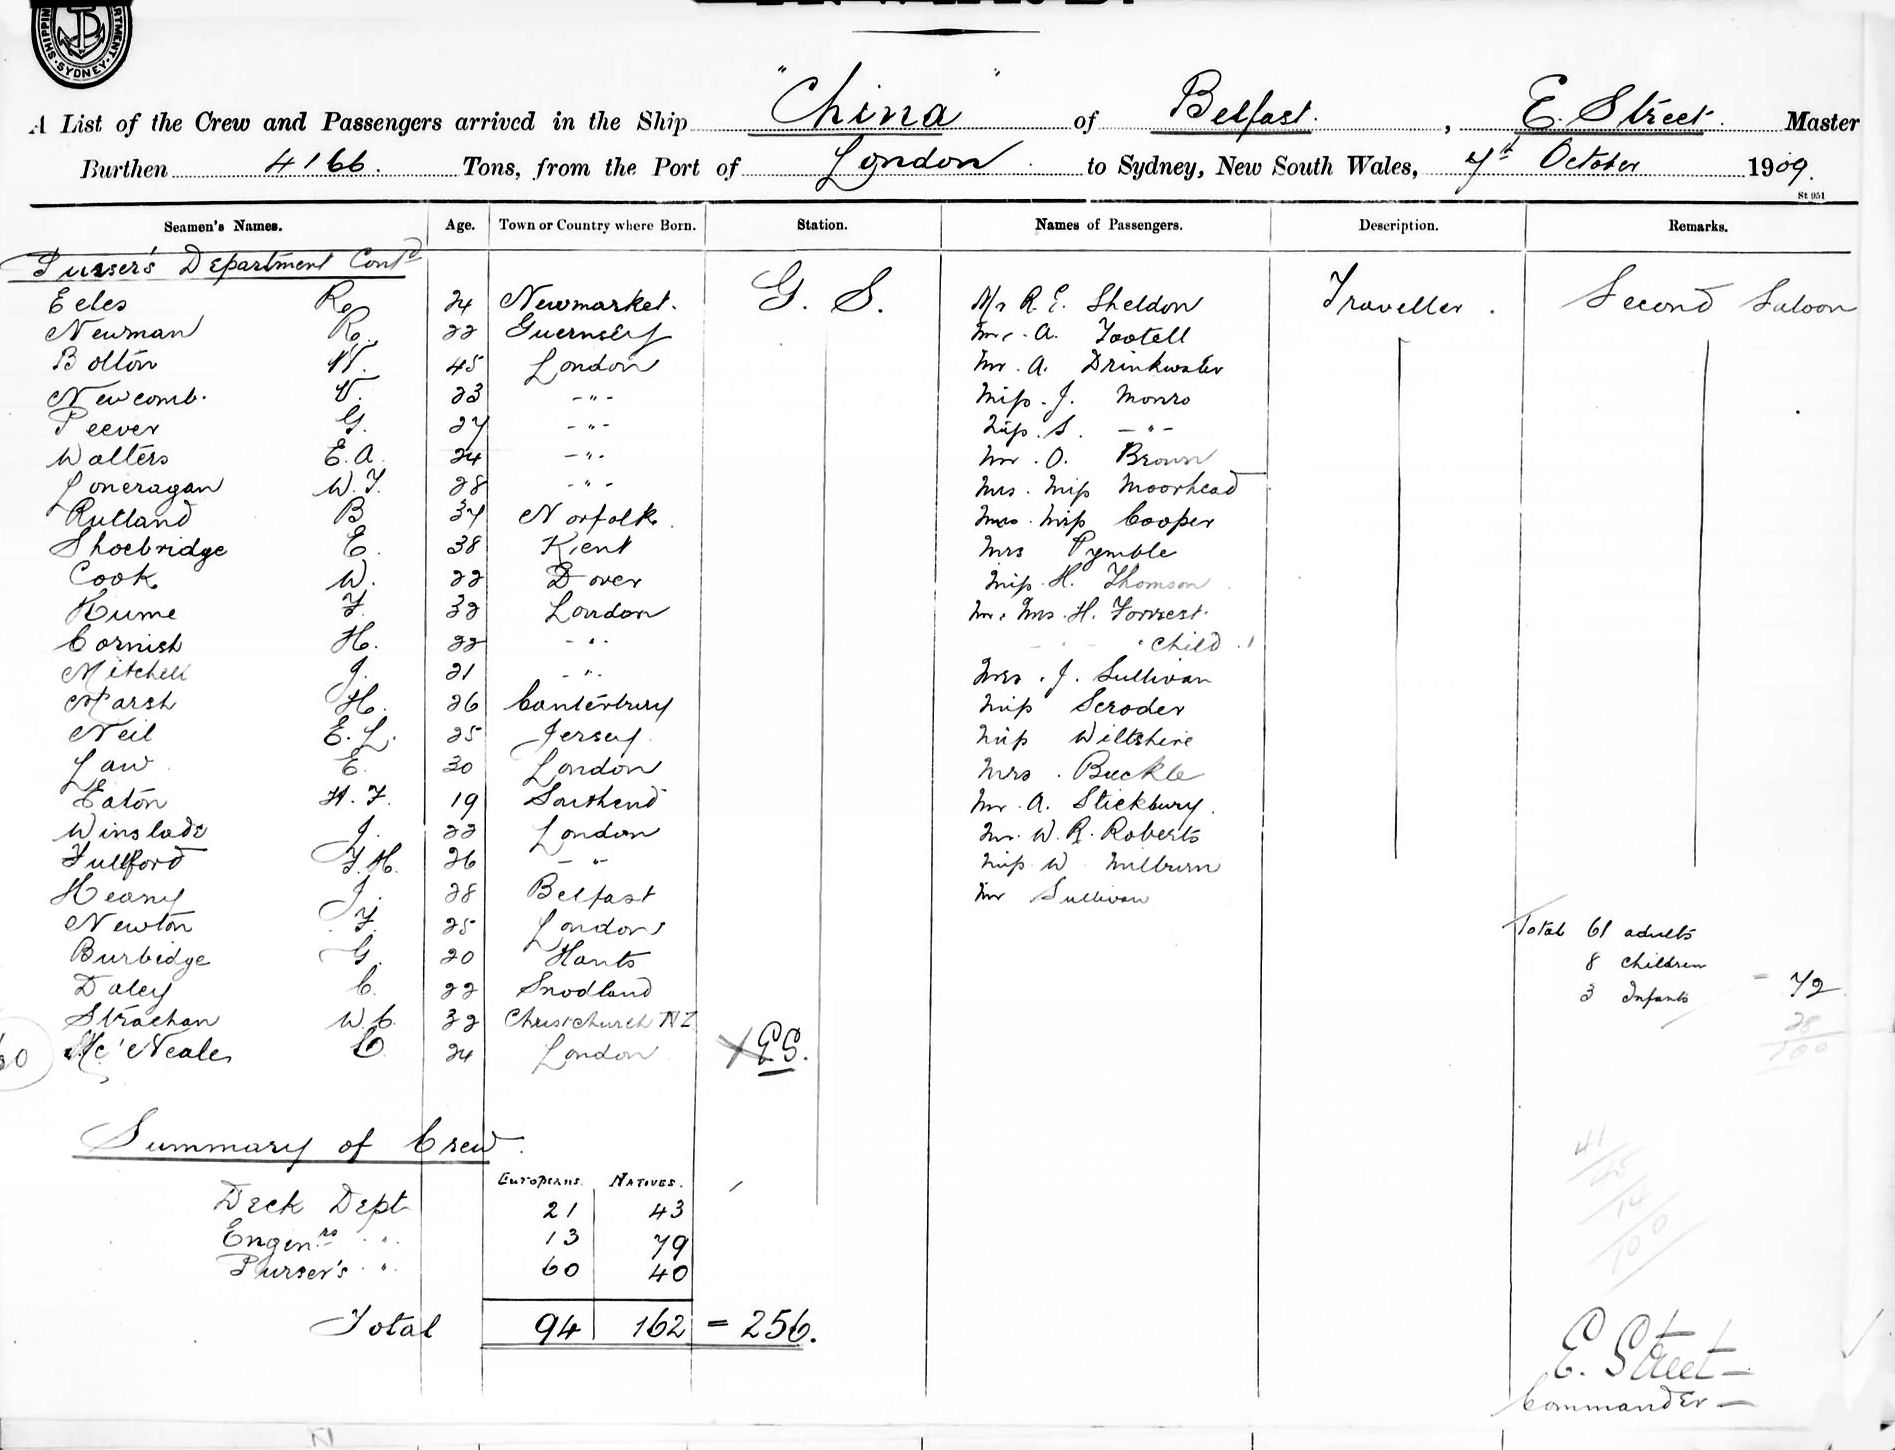 SHIPPING DEPARTMENT SYDNEY
A List of the Crew and Passengers arrived in the Ship "China" of Belfast, E. Street Master
Burthen 4166 Tons, from the Port of London to Sydney, New South Wales, 7th October 1909.
St 951
Seamen's Names. Age. Town or Country where Born. Station. Names of Passengers. Description. Remarks.
Purser's Department Contd
Eeles R. 24 Newmarket. G. S. Mr R. E. Sheldon Traveller. Second Saloon
Newman R. 22 Guernsey Mr. A. Tootell
Bolton W. 45 London Mr. A. Drinkwater
Newcomb. V. 23 - " - Miss. J. Monro
Peever G. 27 - " - Miss. S. - " -
Walters E. A. 24 - " - Mr. O. Brown
Loneragan W. F. 28 - " - Mrs. Miss Moorhead
Rutland B 37 Norfolk. Mrs. Miss Cooper
Shoebridge E. 38 Kent Mrs Pymble
Cook W. 22 Dover Miss. H. Thomson
Hume F. 32 London Mr. Mrs. H. Forrest.
Cornish H. 22 - " - " child. 1
Mitchell J. 21 - " - Mrs. J. Sullivan
Marsh H. 26 Canterbury Miss Scroder
Neil E. L. 25 Jersey Miss Wiltshire
Law E. 30 London Mrs. Buckle
Eaton H. F. 19 Southend Mr. A. Stickbury.
Winslade J. 22 London Mr. W. R. Roberts
Fullford F. H. 26 - " - Miss. W. Milburn
Heany J. 28 Belfast Mr Sullivan
Newton F. 25 London Total 61 adults
Burbidge G. 20 Hants 8 children
Daley C. 22 Snodland 3 Infants = 72
Strachan W. C. 32 Christchurch NZ 28
60 McNeale C. 24 London X ES. 100
Summary of Crew.
Europeans. Natives.
Deck Dept 21 43
Enginrs " 13 79
Purser's " 60 40
Total 94 162 = 256.
41
45
14
100
E. Street
Commander